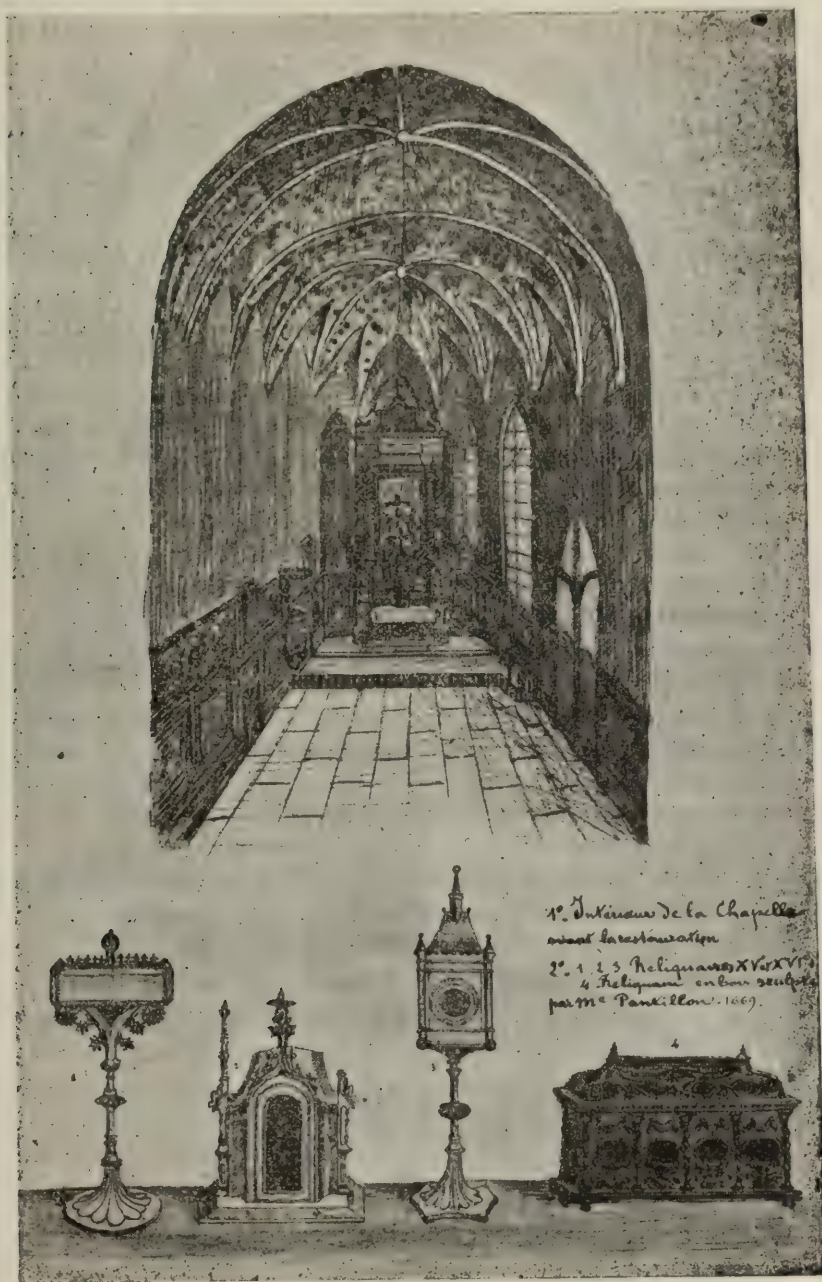 1º. Intérieur de la Chapelle
avant la restauration
2º. 1, 2, 3 Reliquaires XVe XVIe s
4 Reliquaire en bois sculpté
par Me Pantillon - 1669.
3
4